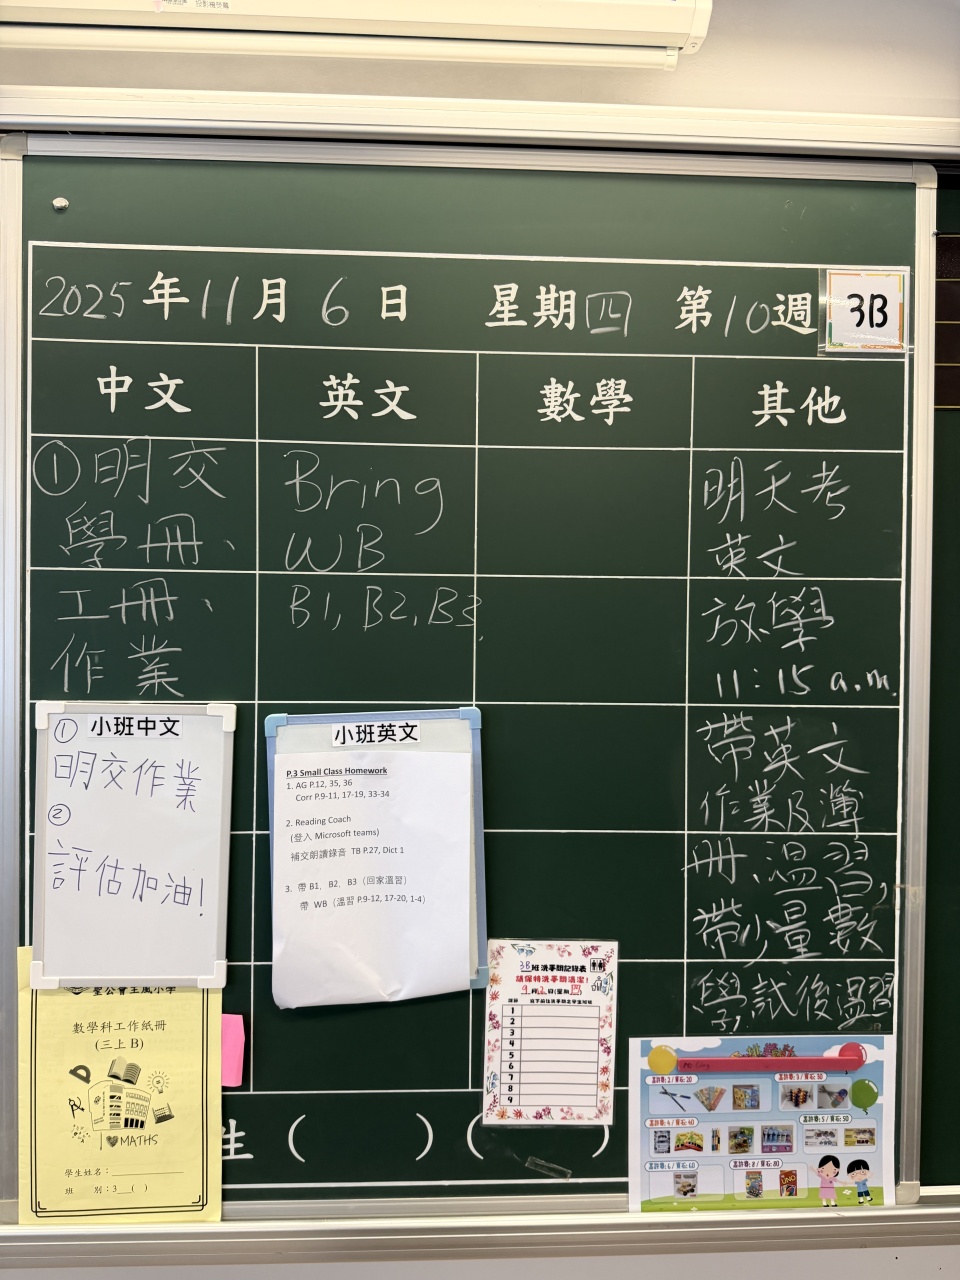 2025年11月6日 星期四 第10週 3B
中文 英文 數學 其他
①明交
學冊、
工冊、
作業
Bring
WB
B1, B2, B3.
明天考
英文
放學
11:15 a.m.
帶英文
作業及簿
冊溫習,
帶少量數
學試後溫習
小班中文
①
明交作業
②
評估加油!
小班英文
P.3 Small Class Homework
1. AG P.12, 35, 36
Corr P.9-11, 17-19, 33-34
2. Reading Coach
(登入 Microsoft teams)
補交朗讀錄音 TB P.27, Dict 1
3. 帶 B1、B2、B3（回家溫習）
帶 WB（溫習 P.9-12, 17-20, 1-4）
3B班洗手間記錄表
請保持洗手間清潔!
1
2
3
4
5
6
7
8
9
數學科工作紙冊
(三上 B)
I MATHS
學生姓名：
班 別：3 ( )
生 ( ) ( )
UNO